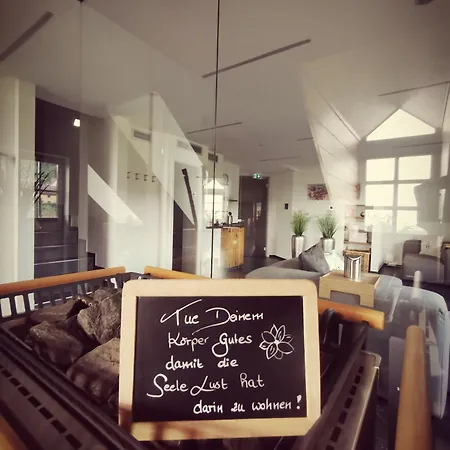 Tue Deinem
Körper Gutes
damit die
Seele Lust hat
darin zu wohnen!